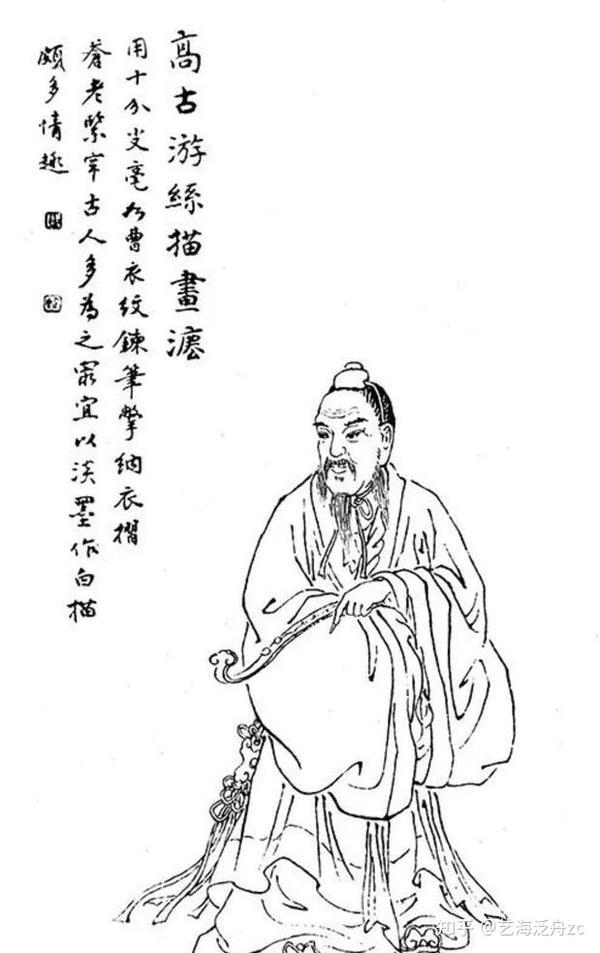 高古游絲描畫灋
用十分尖毫如曹衣紋鍊筆撆納衣摺
蒼老緊牢古人多為之最宜以淡墨作白描
頗多情趣
知乎 @艺海泛舟zc